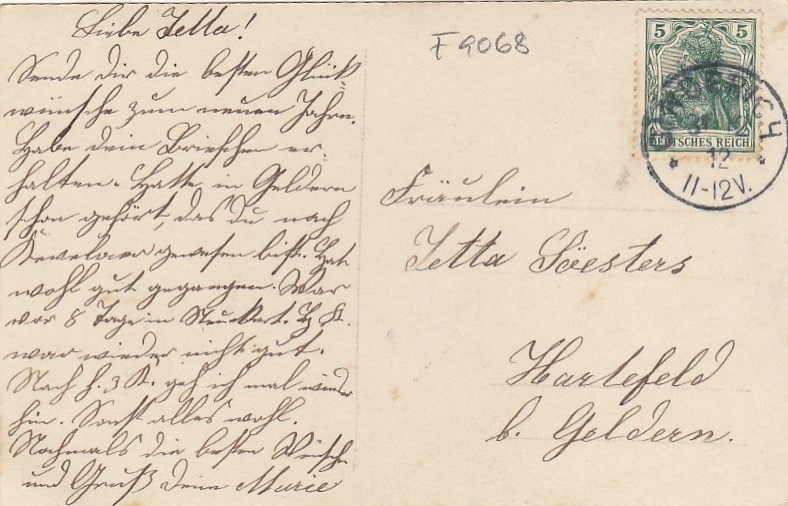 Liebe Jetta!
Sende dir die besten Glück-
wünsche zum neuen Jahre.
Habe dein Briefchen er-
halten. Hatte in Geldern
schon gehört, das du nach
Kevelaer gewesen bist. Hat
wohl gut gegangen. War
vor 8 Tage in
war wieder nicht gut.
Nach h. 3 K. geh ich mal wieder
hin. Sonst alles wohl.
Nochmals die besten Wünsche
und Gruß Deine Marie
F 9068
5 5
DEUTSCHES REICH
31
12
* *
11-12V.
Fräulein
Jetta Söesters
Hartefeld
b. Geldern.